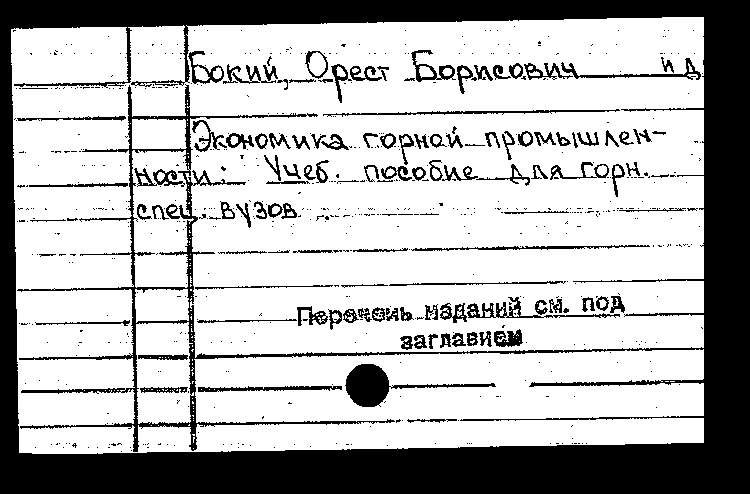 Бокий, Орест Борисович и д
Экономика горной промышлен-
ности: Учеб. пособие для горн.
спец. вузов
Перечень изданий см. под
заглавием